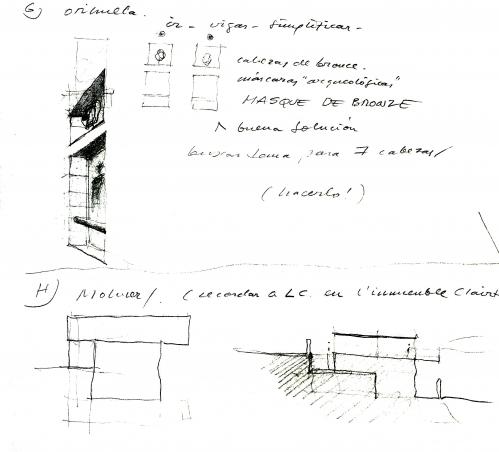 G) orihuela.
vigas - simplificar -
cabezas de bronce.
máscaras "arqueológicas"
MASQUE DE BRONZE
buena solución
para 7 cabezas/
(hacerlo!)
H) (recordar a LC. en l'immeuble Clarté